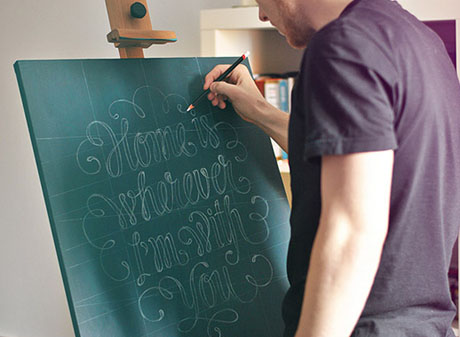 Home is
wherever
I'm with
You